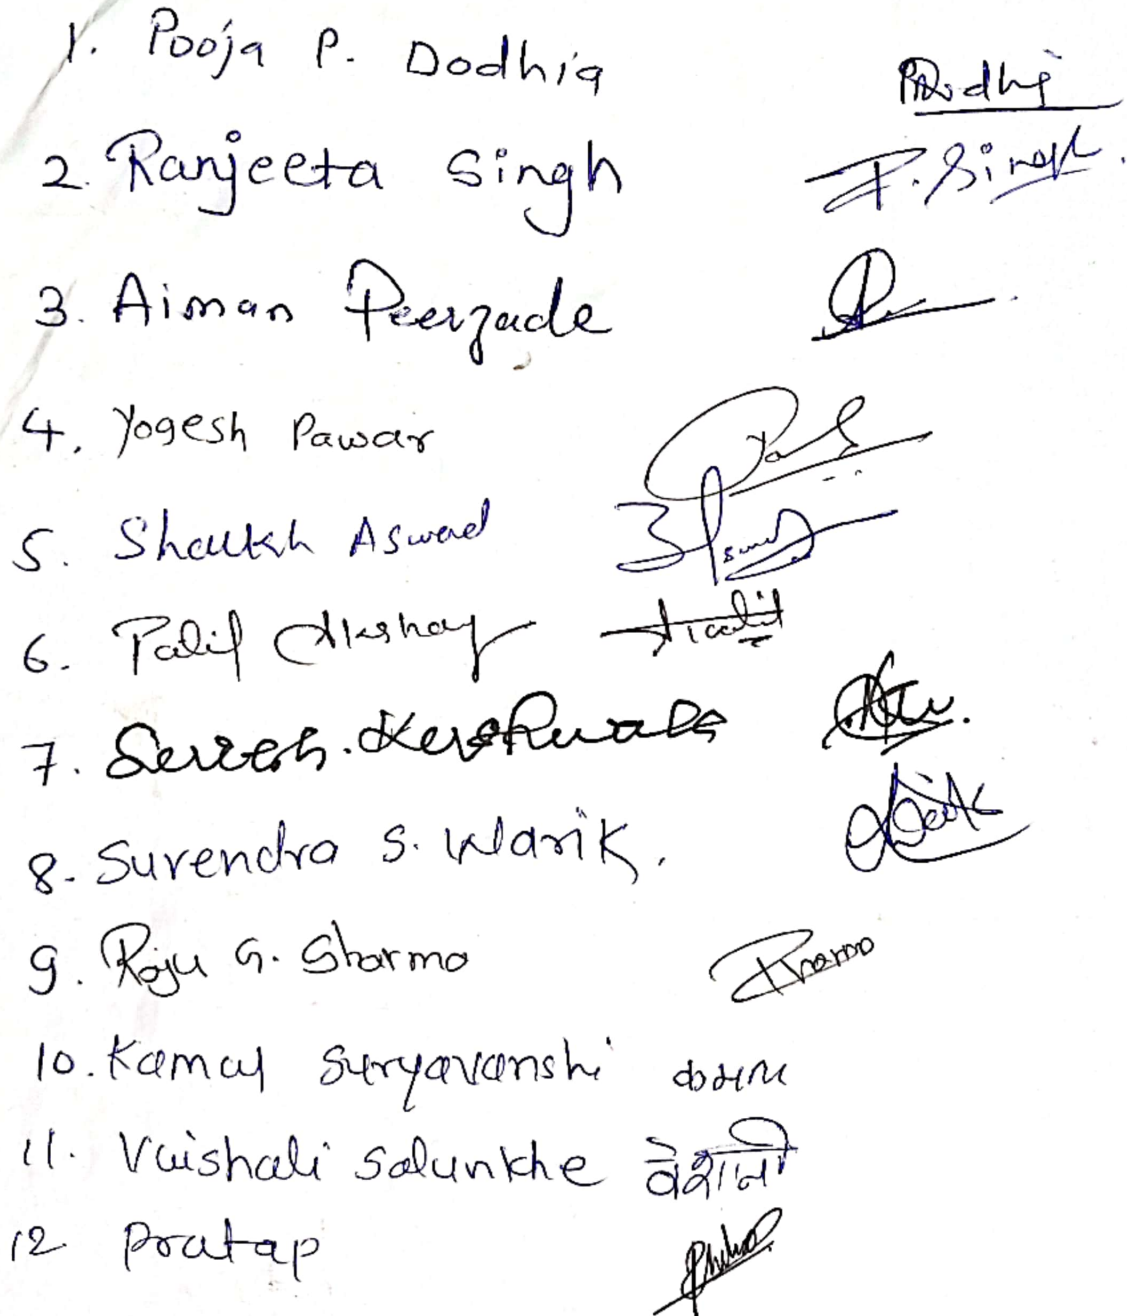 1. Pooja P. Dodhia
2. Ranjeeta Singh R. Singh.
3. Aiman Peerzade
4. Yogesh Pawar
5. Shaikh Aswad
6. Patil Akshay
7. Suresh
8. Surendra S. Warik.
9. Raju G. Sharma
10. Kamal Suryavanshi कमल
11. Vaishali Salunkhe वैशाली
12 Pratap